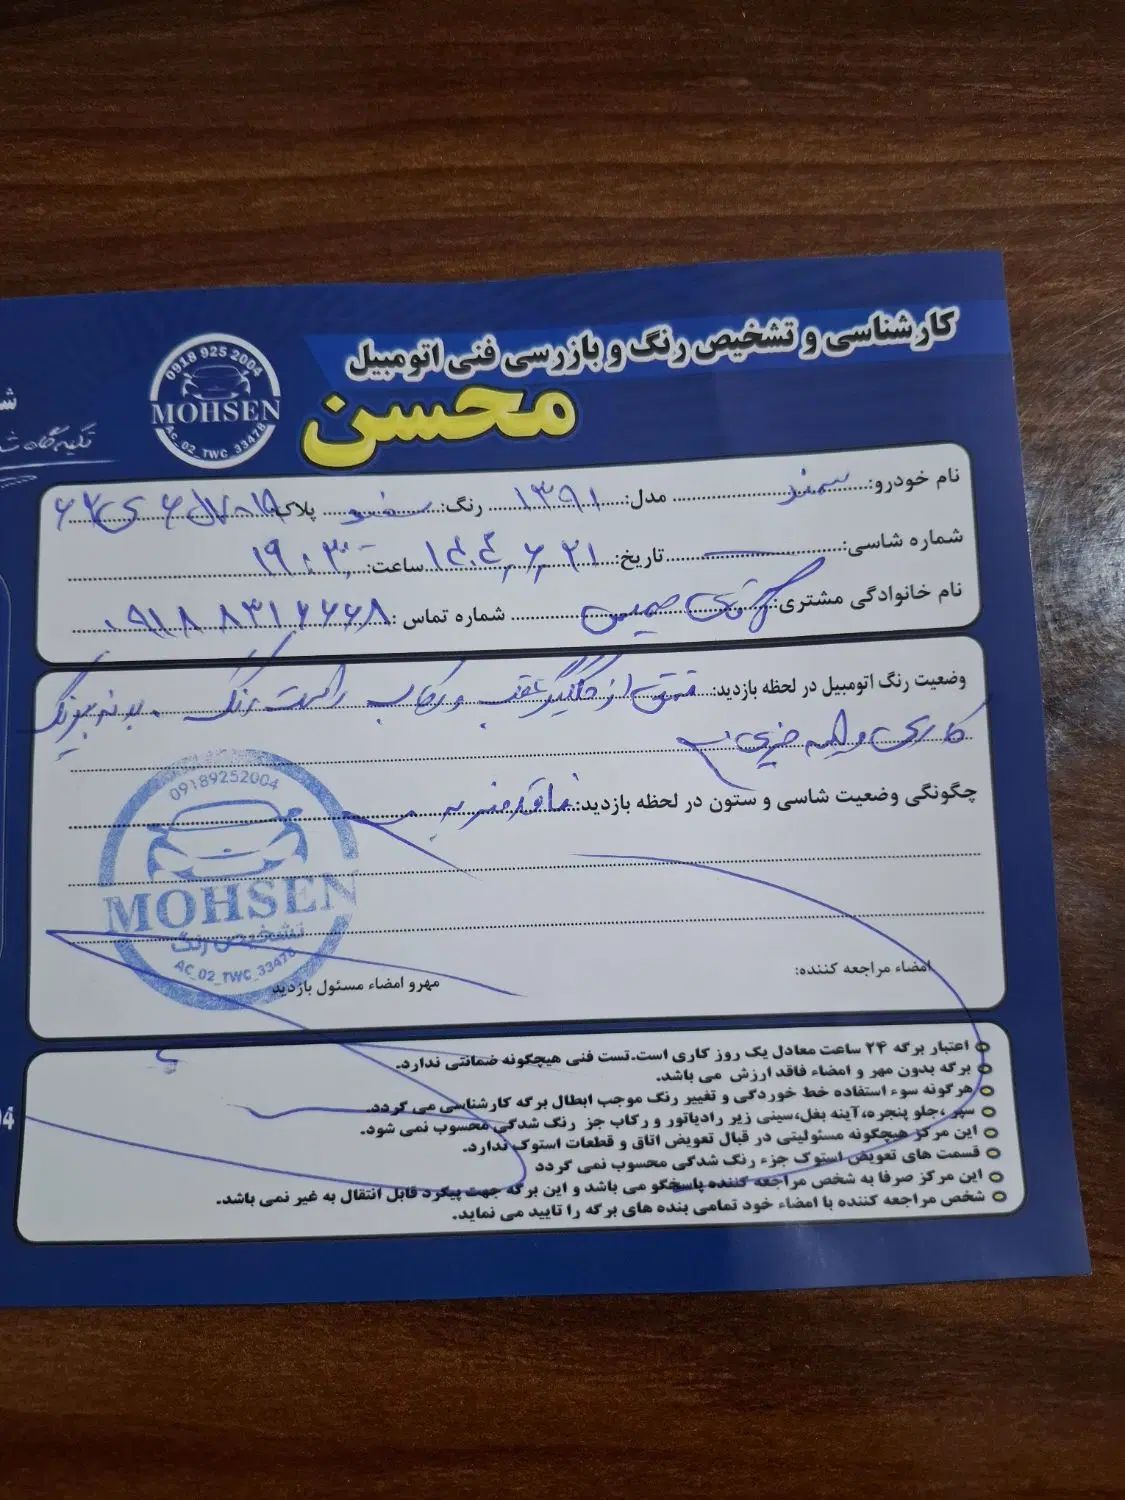 کارشناسی و تشخیص رنگ و بازرسی فنی اتومبیل
محسن
0918 925 2004
MOHSEN
AC_02_TWC_33478
نام خودرو: سمند مدل: ۱۳۹۱ رنگ: سفید پلاک:
شماره شاسی: تاریخ: ۱۴۰۴,۶,۲۱ ساعت: ۱۹:۳۰
نام خانوادگی مشتری: شماره تماس: ۰۹۱۸۸۳۱۶۶۶۸
وضعیت رنگ اتومبیل در لحظه بازدید: از گلگیر عقب و رکاب راست رنگ
چگونگی وضعیت شاسی و ستون در لحظه بازدید: فاقد ضربه
09189252004
MOHSEN
تشخیص رنگ
AC_02_TWC_33478
امضاء مراجعه کننده:
مهرو امضاء مسئول بازدید
اعتبار برگه ۲۴ ساعت معادل یک روز کاری است.تست فنی هیچگونه ضمانتی ندارد.
برگه بدون مهر و امضاء فاقد ارزش می باشد.
هرگونه سوء استفاده خط خوردگی و تغییر رنگ موجب ابطال برگه کارشناسی می گردد.
سپر ،جلو پنجره،آینه بغل،سینی زیر رادیاتور و رکاب جز رنگ شدگی محسوب نمی شود.
این مرکز هیچگونه مسئولیتی در قبال تعویض اتاق و قطعات استوک ندارد.
قسمت های تعویض استوک جزء رنگ شدگی محسوب نمی گردد
این مرکز صرفا به شخص مراجعه کننده پاسخگو می باشد و این برگه جهت پیگرد قابل انتقال به غیر نمی باشد.
شخص مراجعه کننده با امضاء خود تمامی بنده های برگه را تایید می نماید.